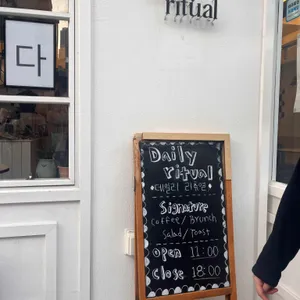 ritual
다
Daily
ritual
데일리 리추얼
Signature
coffee/Brunch
Salad/Toast
open 11:00
close 18:00